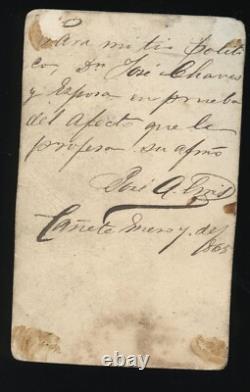 Para mi tio Políti
co, Dn José Chaves
y Esposa en prueba
del afecto que le
profesa su afmo
José A.
Cañete Enero y. del
1865
ebay